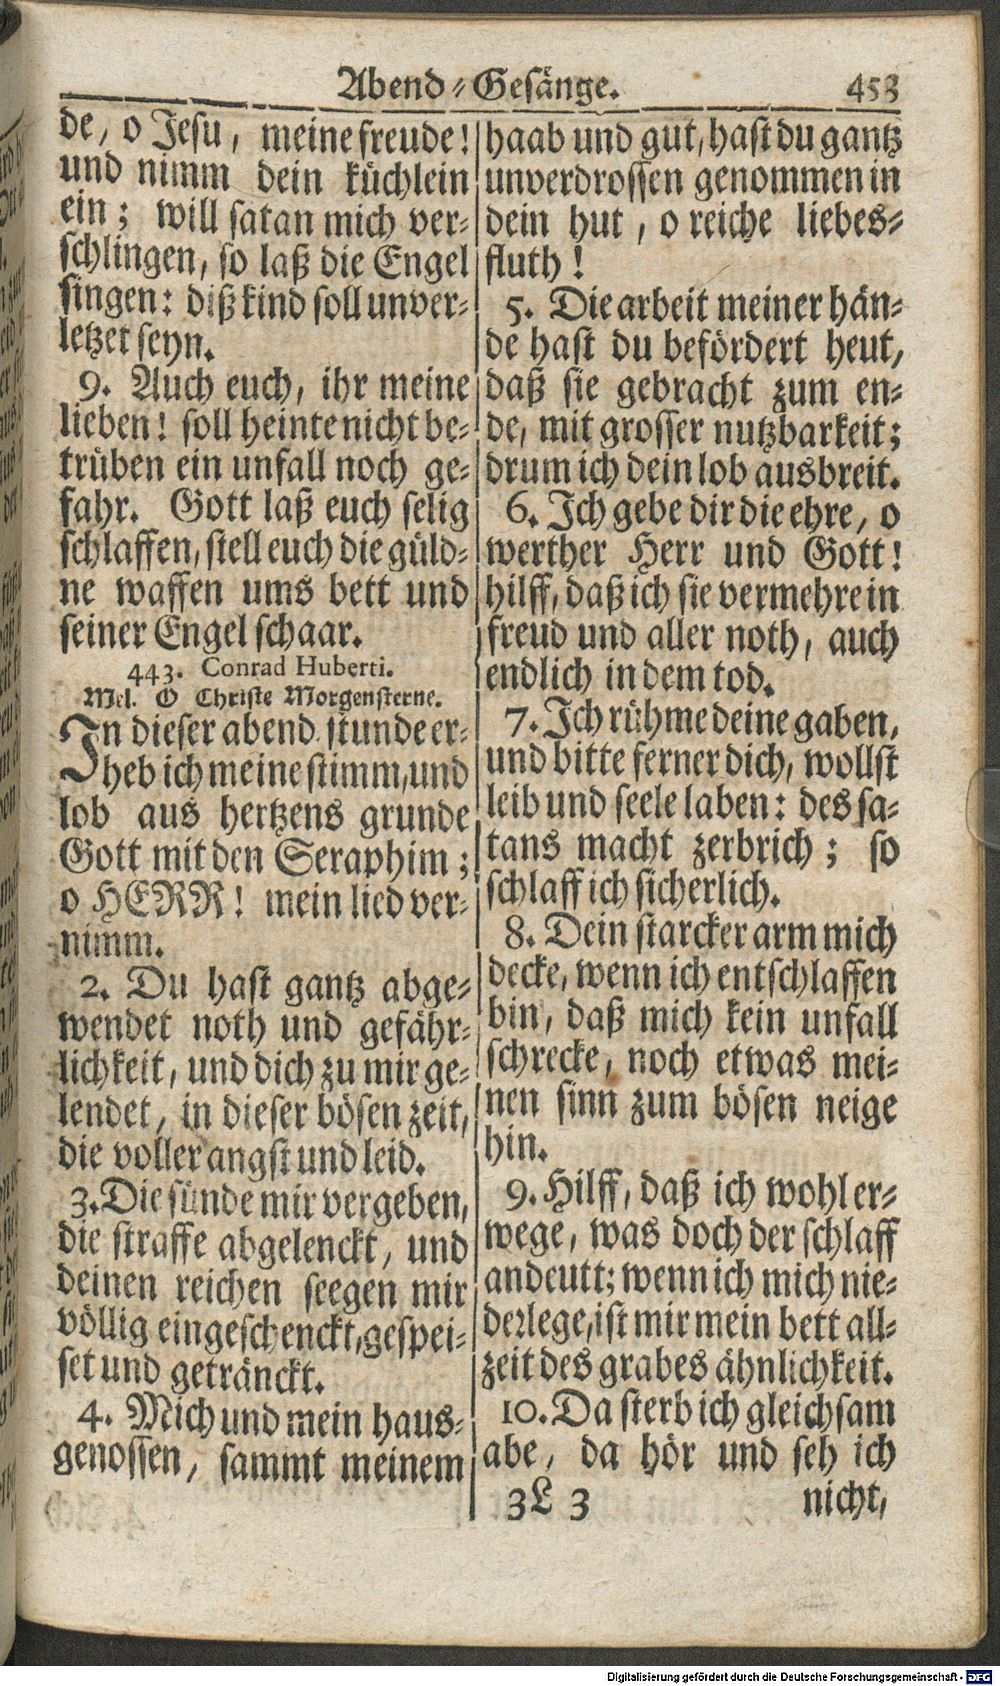 Abend-Gesänge. 453
de, o Jesu, meine freude!
und nimm dein küchlein
ein; will satan mich ver-
schlingen, so laß die Engel
singen: diß kind soll unver-
letzet seyn.
9. Auch euch, ihr meine
lieben! soll heinte nicht be-
trüben ein unfall noch ge-
fahr. Gott laß euch selig
schlaffen, stell euch die güld-
ne waffen ums bett und
seiner Engel schaar.
443. Conrad Huberti.
Mel. O Christe Morgensterne.
In dieser abend stunde er-
heb ich meine stimm, und
lob aus hertzens grunde
Gott mit den Seraphim;
o HERR! mein lied ver-
nimm.
2. Du hast gantz abge-
wendet noth und gefähr-
lichkeit, und dich zu mir ge-
lendet, in dieser bösen zeit,
die voller angst und leid.
3. Die sünde mir vergeben,
die straffe abgelenckt, und
deinen reichen seegen mir
völlig eingeschenckt, gespei-
set und getränckt.
4. Mich und mein haus-
genossen, sammt meinem
haab und gut, hast du gantz
unverdrossen genommen in
dein hut, o reiche liebes-
fluth!
5. Die arbeit meiner hän-
de hast du befördert heut,
daß sie gebracht zum en-
de, mit grosser nutzbarkeit;
drum ich dein lob ausbreit.
6. Ich gebe dir die ehre, o
werther Herr und Gott!
hilff, daß ich sie vermehre in
freud und aller noth, auch
endlich in dem tod.
7. Ich rühme deine gaben,
und bitte ferner dich, wollst
leib und seele laben: des sa-
tans macht zerbrich; so
schlaff ich sicherlich.
8. Dein starcker arm mich
decke, wenn ich entschlaffen
bin, daß mich kein unfall
schrecke, noch etwas mei-
nen sinn zum bösen neige
hin.
9. Hilff, daß ich wohl er-
wege, was doch der schlaff
andeutt; wenn ich mich nie-
derlege, ist mir mein bett all-
zeit des grabes ähnlichkeit.
10. Da sterb ich gleichsam
abe, da hör und seh ich
3L 3 nicht,
Digitalisierung gefördert durch die Deutsche Forschungsgemeinschaft - DFG